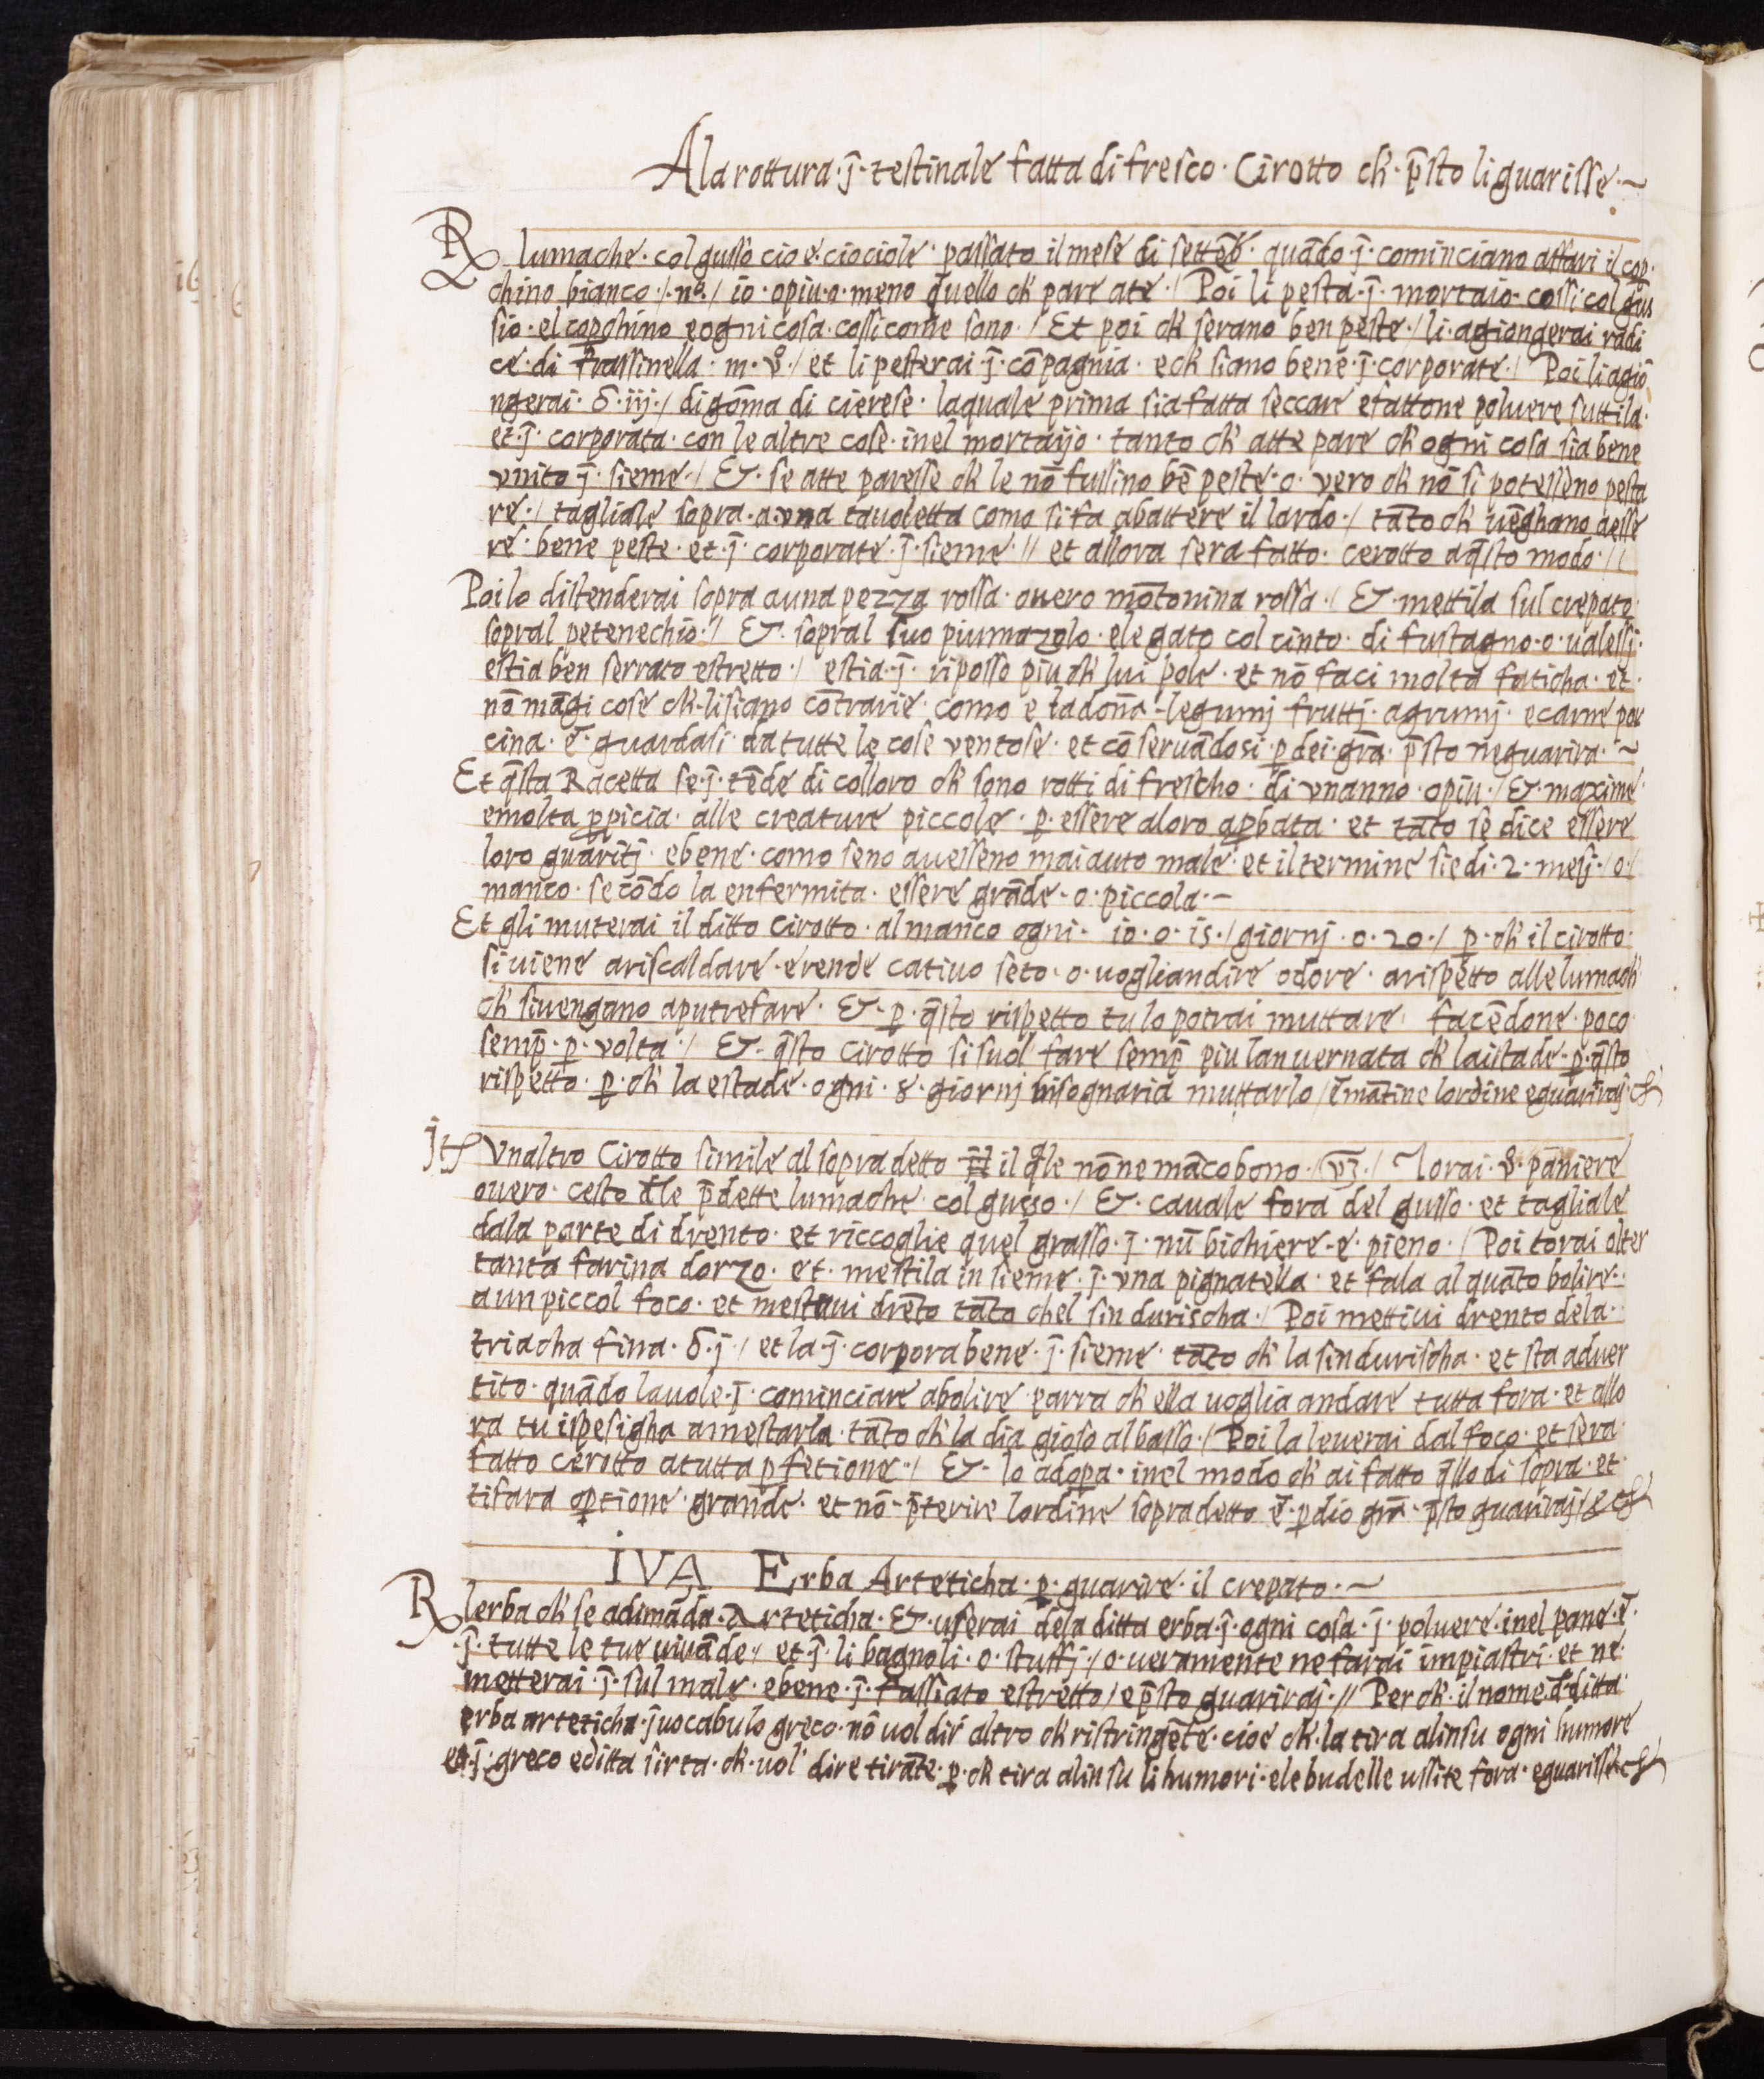 A la rottura · j̄ · testinale fatta di fresco · Cirotto ch' · p̄sto li guarisse · ~
R lumache · col gusso cio e · ciociole · passato il mese di settēb · quādo · j̄ · cominciano affari il cop ·
chino bianco · / · nº · / io · o piu · o · meno q̄uello ch' pare a te · / Poi li pesta · j̄ · mortaio · cossi · col gus
sio · el copchino e ogni cosa · cossi come sono · / Et poi ch' serano ben peste · / li · agiongerai radi
ce · di frassinella · m · / et li pesterai · j̄ · cōpagnia · e ch' siano bene · j̄ · corporate · / Poi li agiō
ngerai · iij · / di gōma di cierese · la quale prima sia fatta seccare e fattone poluere suttila ·
et · j̄ · corporata · con le altre cose · inel mortaijo · tanto ch' atte pare ch' ogni cosa sia bene
vnito j̄ · sieme · / Et · se atte paresse ch' le nō fussino bē peste · o · vero ch' nō si potesseno pesta
re · / tagliale sopra · a vna tauoletta como si fa abattere il lardo · / tāto ch' vēghano aesse
re · bene peste · et · j̄ · corporate · j̄ · sieme · // et allora sera fatto · cerotto a q̄sto modo · //
Poi lo distenderai sopra a una pezza rossa · ouero mōtonina rossa · / Et · mettila sul crepato ·
sopral petenechio · // Et · sopral suo piumazolo · e legato col cinto · di fustagno · o · ualessj ·
e stia ben serrato e stretto · / e stia · j̄ · riposso piu ch' lui pole · et nō faci molta faticha · et ·
nō māgi cose ch' · li siano cōtrarie · como e ladoñā · legumj fruttj · agrumj · e carne por
cina · ē · guardasi · da tutte le cose ventose · et cō seruādosi · p̱ dei · grā · p̄sto ne guarira · ~
Et q̄sta Racetta se · j̄ · tēde di colloro ch' sono rotti di frescho · di vnanno · o piu · / Et · maxime ·
e molta p̱picia · alle creature piccole · p̱ · essere a loro ap̱bata · et tāto se dice essere
loro guaritj · e bene · como se no auesseno mai auto male · et il termine sie di · 2 · mesj · / o /
manco · secōdo la enfermita · essere grāde · o · piccola · ~
Et gli muterai il ditto cirotto · al manco ogni · 10 · o · 15 · / giornj · o · 20 · / p̱ · ch' il cirotto ·
si uiene a riscaldare · e rende catiuo feto · o · vogliandire odore · a rispetto alle lumach'
ch' si uengano a putrefare · Et · p̱ · q̄sto rispetto tu lo potrai muttare · facēdone · poco ·
semp̄ · p̱ · volta · / Et · q̄sto cirotto si suol fare semp̄ piu lanuernata ch' laistade · p̱ · q̄sto
rispetto · p̱ · ch' la estade · ogni · 8 · giornj bisognaria muttarlo / ē mātine lordine e guarirai · &
Jt Vnaltro Cirotto simile al sopra detto il q̄le nō ne māco bono · / / Torai · paniere
ouero · cesto d̄le p̄dette lumache · col gusso · / Et · cauale fora del gusso · et tagliale
dala parte di drento · et riccoglie quel grasso · j̄ · nū bichiere · e · pieno · / Poi torai olter
tanta farina dorzo · et · mestila in sieme · j̄ · vna pignatella · et fala al quāto bolire ·
a un piccol foco · et mestaui drēto tāto chel sin durischa · / Poi mettiui drento dela ·
triacha fina · j · / et la · j̄ · corpora bene · j̄ · sieme · tāto ch' la sindurischa · et sta aduer
tito · quādo la uole · j̄ · cominciare abolire · parra ch' ella uoglia andare tutta fora · et allo
ra tu ispesigha a mestarla · tāto ch' la dia gioso al basso · / Poi la leuerai dal foco · et sera ·
fatto cerotto a tutta p̱fetione · / Et · lo adop̱a · inel modo ch' ai fatto q̄llo di sopra · et ·
ti fara op̱tione · grande · et nō · p̄terire lordine sopra detto ē · p̱ dio grā · p̄sto guarirai / &
IVA Erba Arteticha · p̱ · guarire · il crepato · ~
R lerba ch' se adimāda · Arteticha · Et · userai dela ditta erba · j̄ · ogni cosa · j̄ · poluere · inel pane · ē ·
· j̄ · tutte le tue uiuāde · / et · j̄ · li bagnoli · o · stuffj · / o · ueramente ne farai impiastri · et ne ·
metterai · j̄ · sul male · e bene · j̄ · fassiato e stretto / e p̄sto guarirai · // Per ch' · il nome d̄ ditta ·
erba arteticha · j uocabulo greco · nō uol dir' altro ch' ristringēte · cioe ch' · la tira alinsu ogni humore
j̄ · greco e ditta sirta · ch' · uol' dire tirāte · p̱ · ch' tira alin su li humori · e le budelle ussite fora · e guarisse &